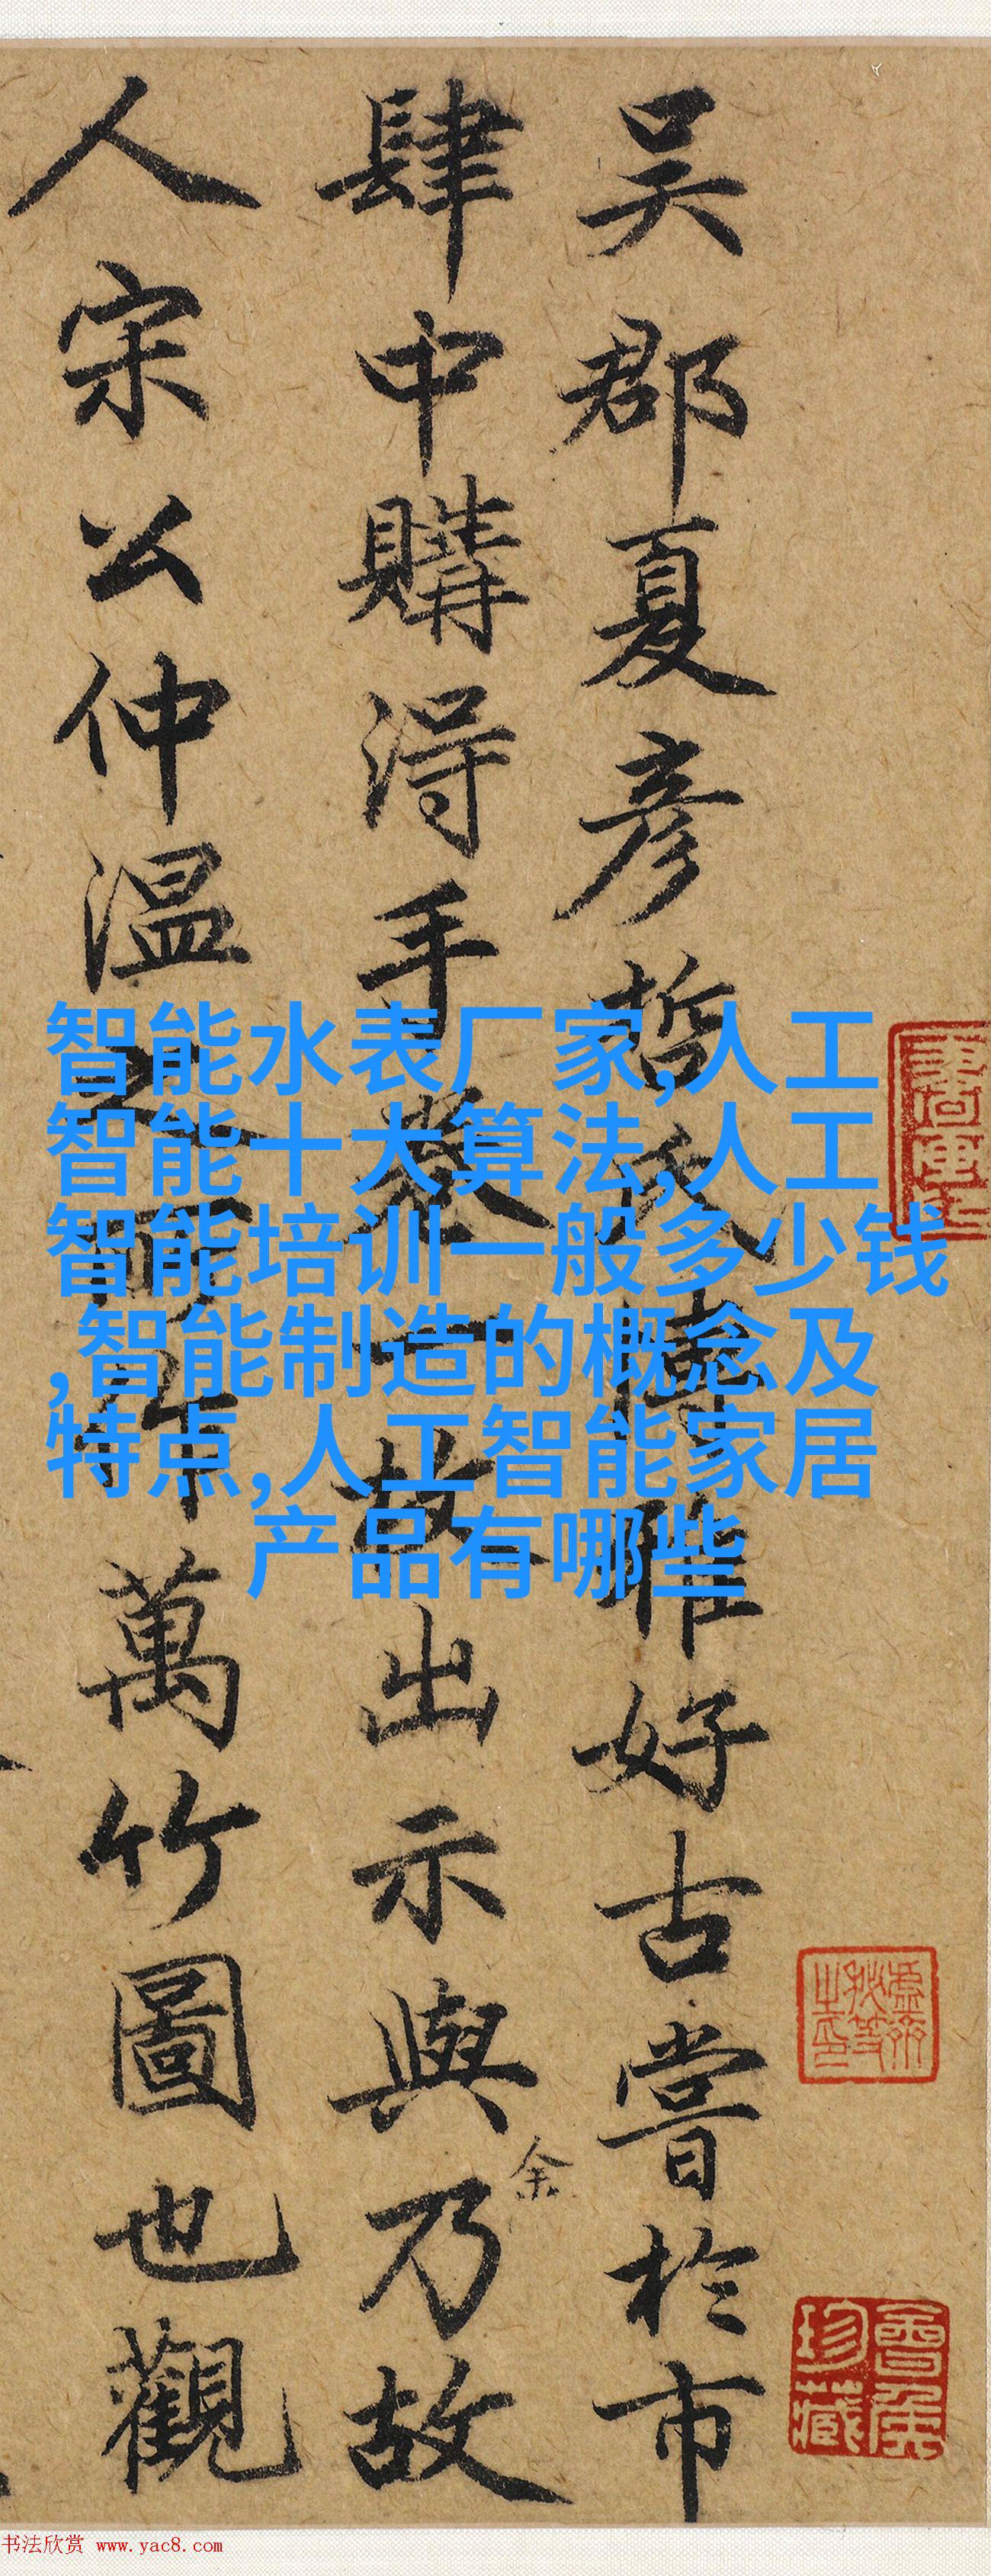 吴郡夏彦哲氏雅好古嘗於市
肆中購得手卷一出示與余乃故
人宋公仲温之所作萬竹圖也觀
智能水表厂家,人工
智能十大算法,人工
智能培训一般多少钱
,智能制造的概念及
特点,人工智能家居
产品有哪些
书法欣赏 www.yac8.com